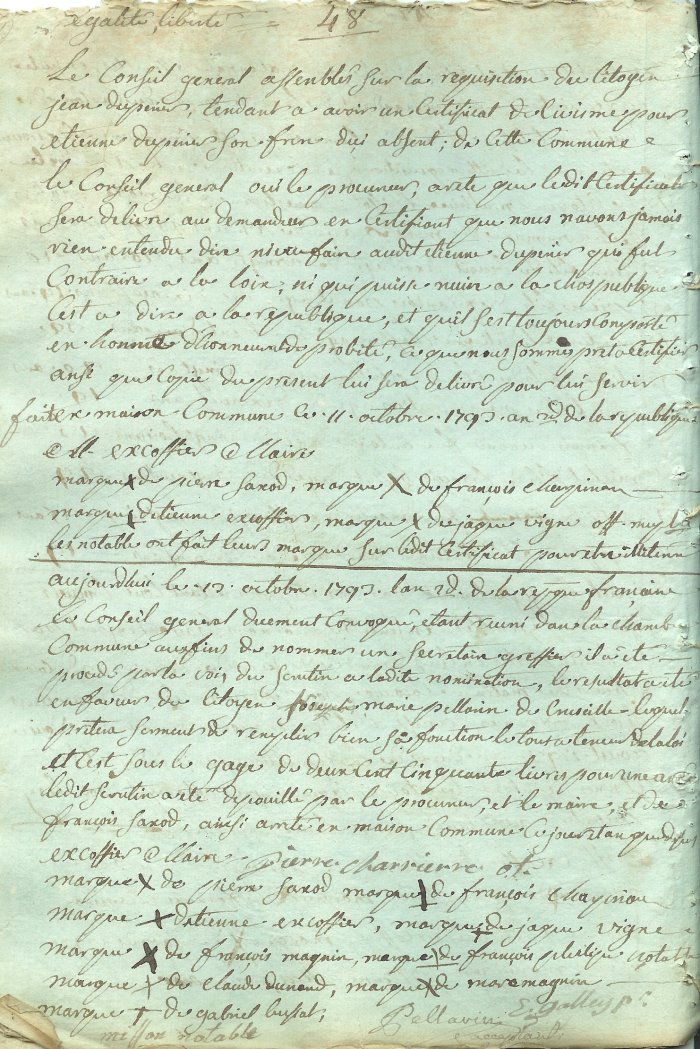 egalité, liberté = 48
Le Conseil general assemblés sur la requisition du Citoyen
jean dupenier, tendant a avoir un Certificat de Civisme pour
etienne dupenier son frere dici absent; de Cette Commune e
le Conseil general oui le procureur, arete que ledit Certificat
sera delivre au demandeur en Certifiant que nous navons jamais
rien entendu dire ni vu faire audit etienne dupenier qui fut
Contraire a la loix; ni qui puisse nuire a la chos publique
Cest a dire a la république, et quil sest toujours Comporté
en homme d'honneur et de probité, Ce que nous sommes pret a Certifier
ansi que Copie du present lui sera delivré pour lui servir
fait en maison Commune Ce 11. octobre 1793 an 2d. de la republique
excoffier Maire
marque X de pierre saxod, marque X de françois
marque X detienne excoffier, marque X de jaque vigne off. muy
les notable ont fait leurs marque sur ledit Certificat pour
aujourdhui le 13. octobre 1793. lan 2d. de la repque françaine
Le Conseil general duement Convoqué, etant reuni dan la chambre
Commune aux fins de nommer un Secretaire greffier il a été
procedé par la voix du scrutin a ladite nomination, le resultat a été
en faveur du Citoyen joseph marie pellarin de Cruseille lequel
pretera serment de remplir bien sa fonction le tout a teneur de la loi
et Cest sous le gage de deux Cent Cinquante livres pour une
ledit scrutin a été depouillé par le procureur, et le maire, et de
françois saxod, ainsi arreté en maison Commune Ce jour et an que dessus
excoffier Maire pierre charrierre of.
marque X de pierre saxod marque X de françois
marque X detienne excoffier, marque X de jaque vigne
marque X de françois magnin, marque X de françois philipe notable
marque X de Claude Dunand, marque X de mare magnin
marque X de gabriel bussat,
Pellarin
notable